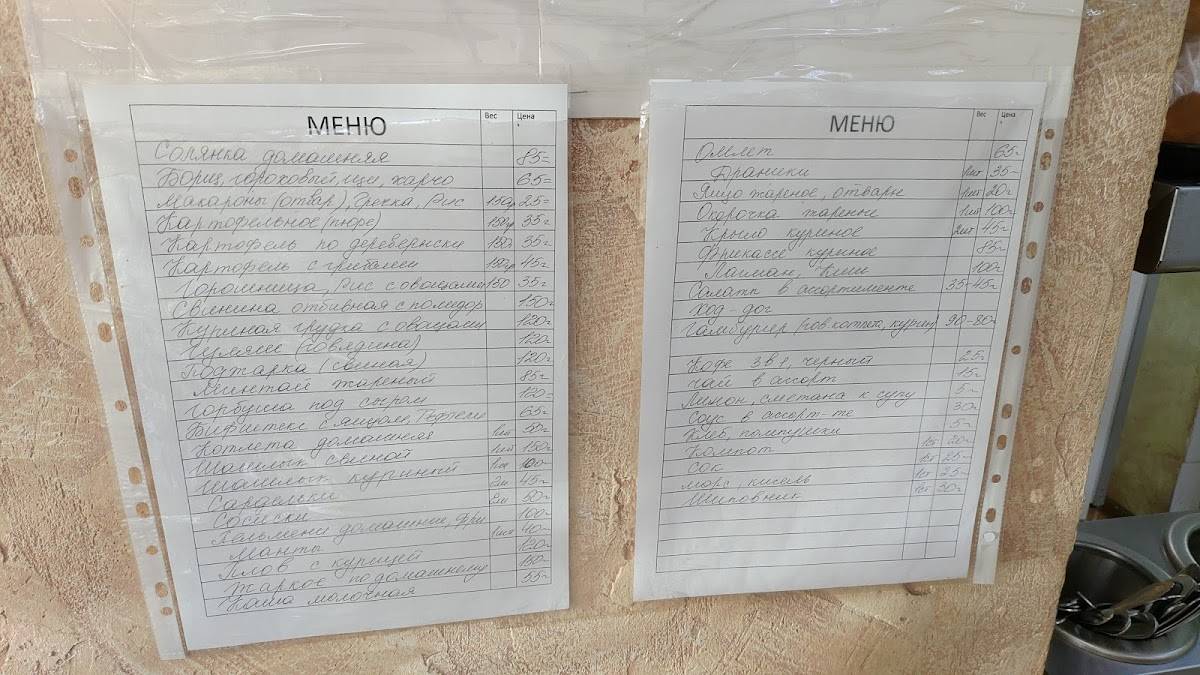 МЕНЮ Вес Цена
Солянка домашняя 85=
Борщ, гороховый, щи, харчо 65=
Макароны (отвар), Гречка, Рис 150гр 25=
Картофельное (пюре) 150гр 35=
Картофель по деревенски 150 35=
Картофель с грибами 150гр 45=
Горошница, Рис с овощами 150 35=
Свинина отбивная с помидор 150=
Куриная грудка с овощами 120=
Гуляш (говядина) 120=
Поджарка (свиная) 120=
Минтай жареный 85=
Горбуша под сыром 120=
Бифштекс с яйцом, Тефтели 65=
Котлета домашняя 1шт 50=
Шашлык свиной 1шт 150=
Шашлык куриный 1шт 100=
Сардельки 2шт 45=
Сосиски 2шт 50=
Пельмени домашние, 100=
Манты 1шт 40=
Плов с курицей 120=
Жаркое по домашнему 150=
Каша молочная 55=
МЕНЮ Вес Цена
Омлет 65=
Драники 1шт 35=
Яйцо жареное, отварн 1шт 20=
Окорочка жареные 1шт 100=
Крыло куриное 2шт 45=
Фрикасе куриное 85=
Лагман, 100=
Салаты в ассортименте 35-45=
Ход-дог
Гамбургер (гов.котлета, курин) 90-80=
Кофе 3в1, черный 25=
Чай в ассорт 15=
Лимон, сметана к супу 5=
Соус в ассорт-те 30=
Хлеб, пампушки 5=
Компот 1ст 20=
Сок 1ст 25=
Морс, кисель 1ст 25=
Шиповник 1ст 30=